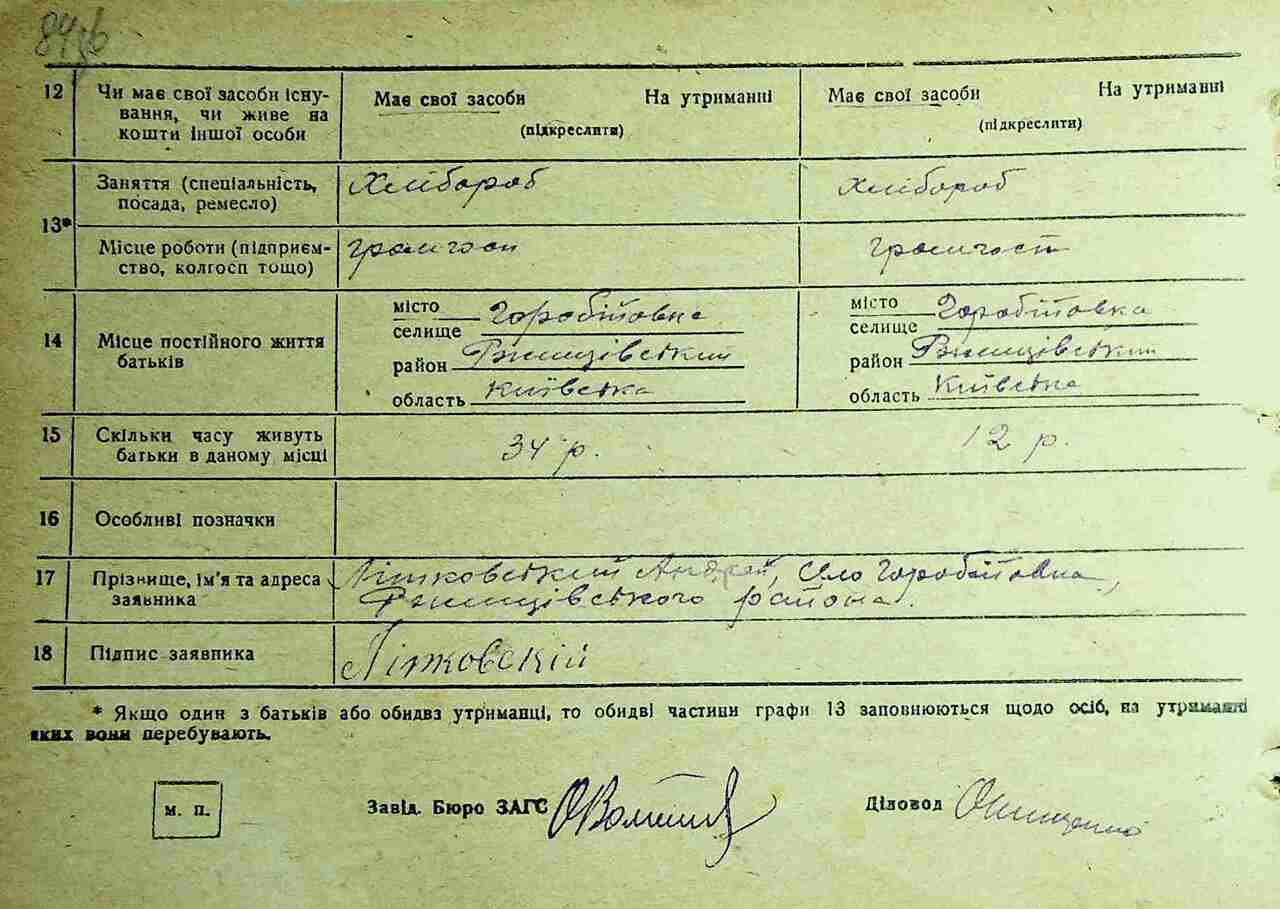 12 Чи має свої засоби існу-
вання, чи живе на
кошти іншої особи
Має свої засоби На утриманні
(підкреслити)
Має свої засоби На утриманні
(підкреслити)
13* Заняття (спеціальність,
посада, ремесло)
Хлібороб
хлібороб
Місце роботи (підприєм-
ство, колгосп тощо)
14 Місце постійного життя
батьків
місто
селище Горобіївка
район Ржищівський
область київська
місто
селище Горобіївка
район Ржищівський
область Київська
15 Скільки часу живуть
батьки в даному місці
34 р.
12 р.
16 Особливі позначки
17 Прізвище, ім'я та адреса
заявника
Літковський Андрей, село Горобіївка,
Ржищівського района.
18 Підпис заявника
Літковскій
* Якщо один з батьків або обидвз утриманці, то обидві частини графи 13 заповнюються щодо осіб, на утриманні
яких вони перебувають.
м. п.
Завід. Бюро ЗАГС
Діловод Онищенко